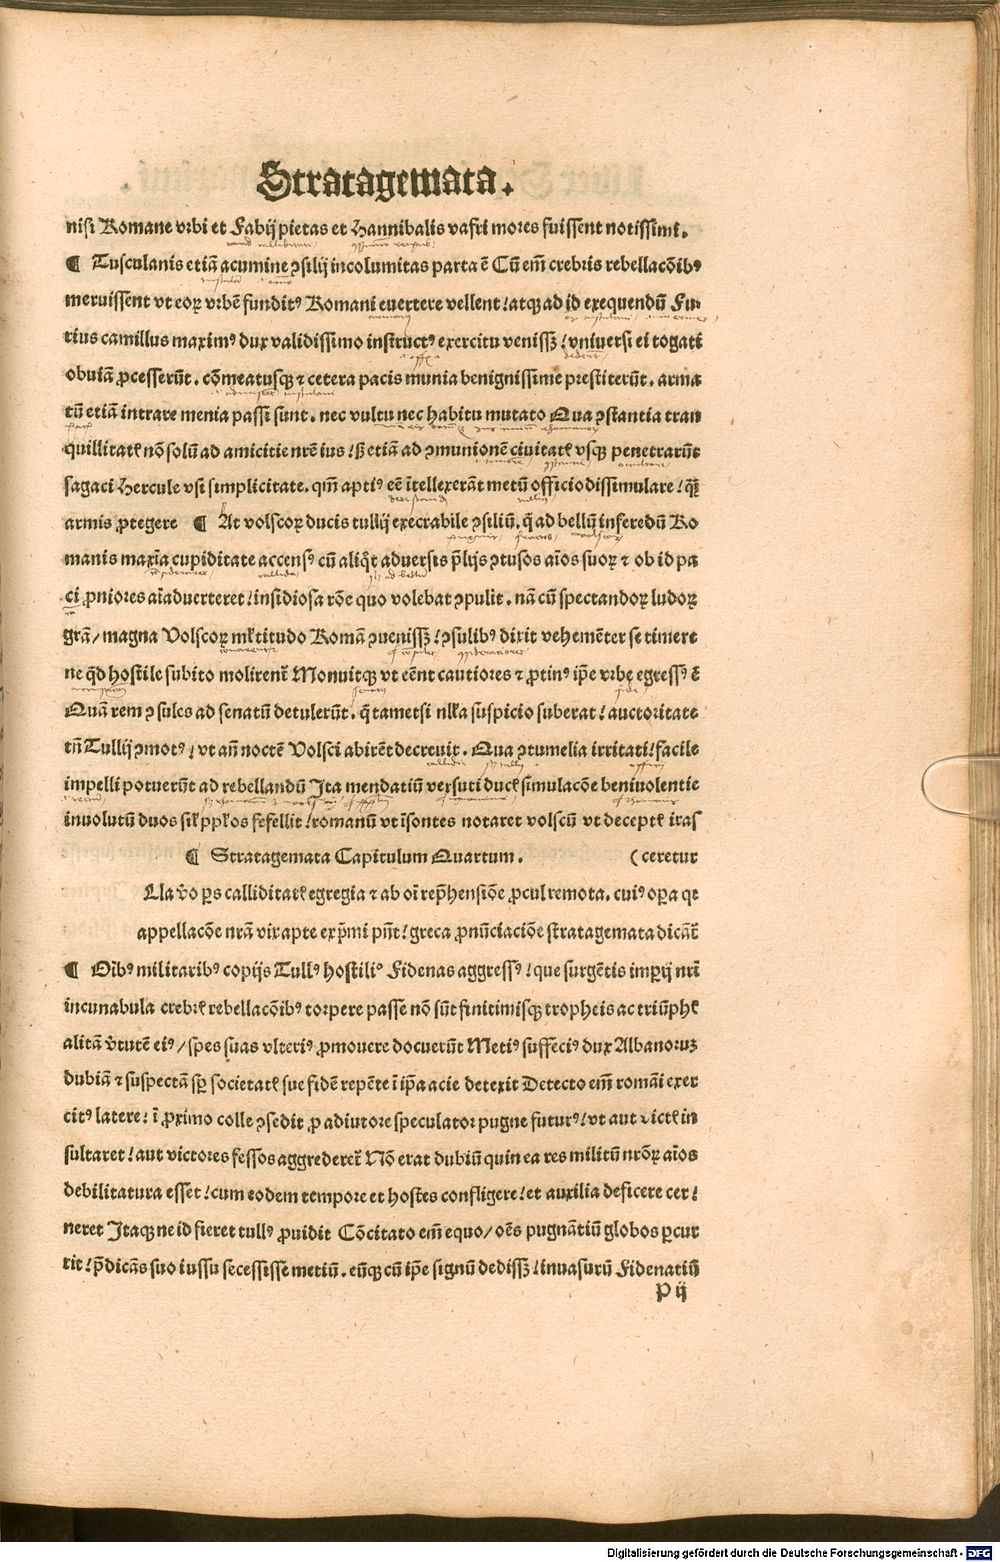 Stratagemata.
nisi Romane vrbi et Fabij pietas et Hannibalis vafri mores fuissent notissimi.
¶ Tusculanis etiã acumine ꝯsilij incolumitas parta ẽ Cũ em̃ crebris rebellacõibꝰ
meruissent vt eoꝝ vrbẽ funditꝰ Romani euertere vellent / atqꝫ ad id exequendũ Fu⸗
rius camillus maximꝰ dux validissimo instructꝰ exercitu venissꝫ / vniuersi ei togati
obuiã ꝓcesserũt. cõmeatusqꝫ ⁊ cetera pacis munia benignissime prestiterũt. arma
tũ etiã intrare menia passi sunt. nec vultu nec habitu mutato Qua ꝯstantia tran
quillitatꝭ nõ solũ ad amicitie nrẽ ius / ß etiã ad ꝯmunionẽ ciuitatꝭ vsqꝫ penetrarũt
sagaci Hercule vsi simplicitate. qm̃ aptiꝰ eẽ ĩtellexerãt metũ officio dissimulare / q̃ꝫ
armis ꝓtegere ¶ At volscoꝝ ducis tullij execrabile ꝯsiliũ. q̃ ad bellũ inferedũ Ro
manis maxĩa cupiditate accensꝰ cũ aliq̃t aduersis p̃lijs ꝯtusos aĩos suoꝝ ⁊ ob id pa
ci ꝓniores aĩaduerteret / insidiosa rõe quo volebat ꝯpulit. nã cũ spectandoꝝ ludoꝝ
grã / magna Volscoꝝ mꝉtitudo Romã ꝯuenissꝫ / ꝯsulibꝰ dixit vehemẽter se timere
ne q̃d hostile subito molirent᷑ Monuitqꝫ vt eẽnt cautiores ⁊ ꝓtinꝰ ip̃e vrbe egressꝰ ẽ
Quã rem ꝯsules ad senatũ detulerũt. q̃ tametsi nꝉla suspicio suberat / auctoritate
tñ Tullij ꝯmotꝰ / vt añ noctẽ Volsci abirẽt decreuit. Qua ꝯtumelia irritati / facile
impelli potuerũt ad rebellandũ Ita mendatiũ versuti ducꝭ simulacõe beniuolentie
inuolutũ duos siꝉ ppꝉos fefellit / romanũ vt ĩsontes notaret volscũ vt deceptꝭ iras
¶ Stratagemata Capitulum Quartum. (ceretur
Lla v̂o ꝑs calliditatꝭ egregia ⁊ ab oĩ rep̃hensiõe ꝓcul remota. cuiꝰ oꝑa qꝛ
appellacõe nrã vix apte exp̃mi pñt / greca ꝓnũciaciõe stratagemata dicãt᷑
¶ Oĩbꝰ militaribꝰ copijs Tullꝰ hostiliꝰ Fidenas aggressꝰ / que surgẽtis imꝑij nr̃i
incunabula crebrꝭ rebellacõibꝰ torpere passe nõ sũt finitimisqꝫ tropheis ac triũphꝭ
alitã v̂tutẽ eiꝰ / spes suas vlteriꝰ ꝓmouere docuerũt Metiꝰ suffeciꝰ dux Albanoruꝫ
dubiã ⁊ suspectã sꝑ societatꝭ sue fidẽ repẽte ĩ ip̃a acie detexit Detecto em̃ romãi exer
citꝰ latere / ĩ ꝓximo colle ꝯsedit ꝓ adiutore speculator pugne futurꝰ / vt aut victꝭ in
sultaret / aut victores fessos aggrederet᷑ Nõ erat dubiũ quin ea res militũ nrõꝝ aĩos
debilitatura esset / cum eodem tempore et hostes confligere / et auxilia deficere cer⸗
neret Itaqꝫ ne id fieret tullꝰ ꝓuidit Cõcitato em̃ equo / oẽs pugnãtiũ globos ꝑcur
rit / p̃dicãs suo iussu secessisse metiũ. eũqꝫ cũ ip̃e signũ dedissꝫ / inuasurũ Fidenatiũ
P ij
Digitalisierung gefördert durch die Deutsche Forschungsgemeinschaft - DFG